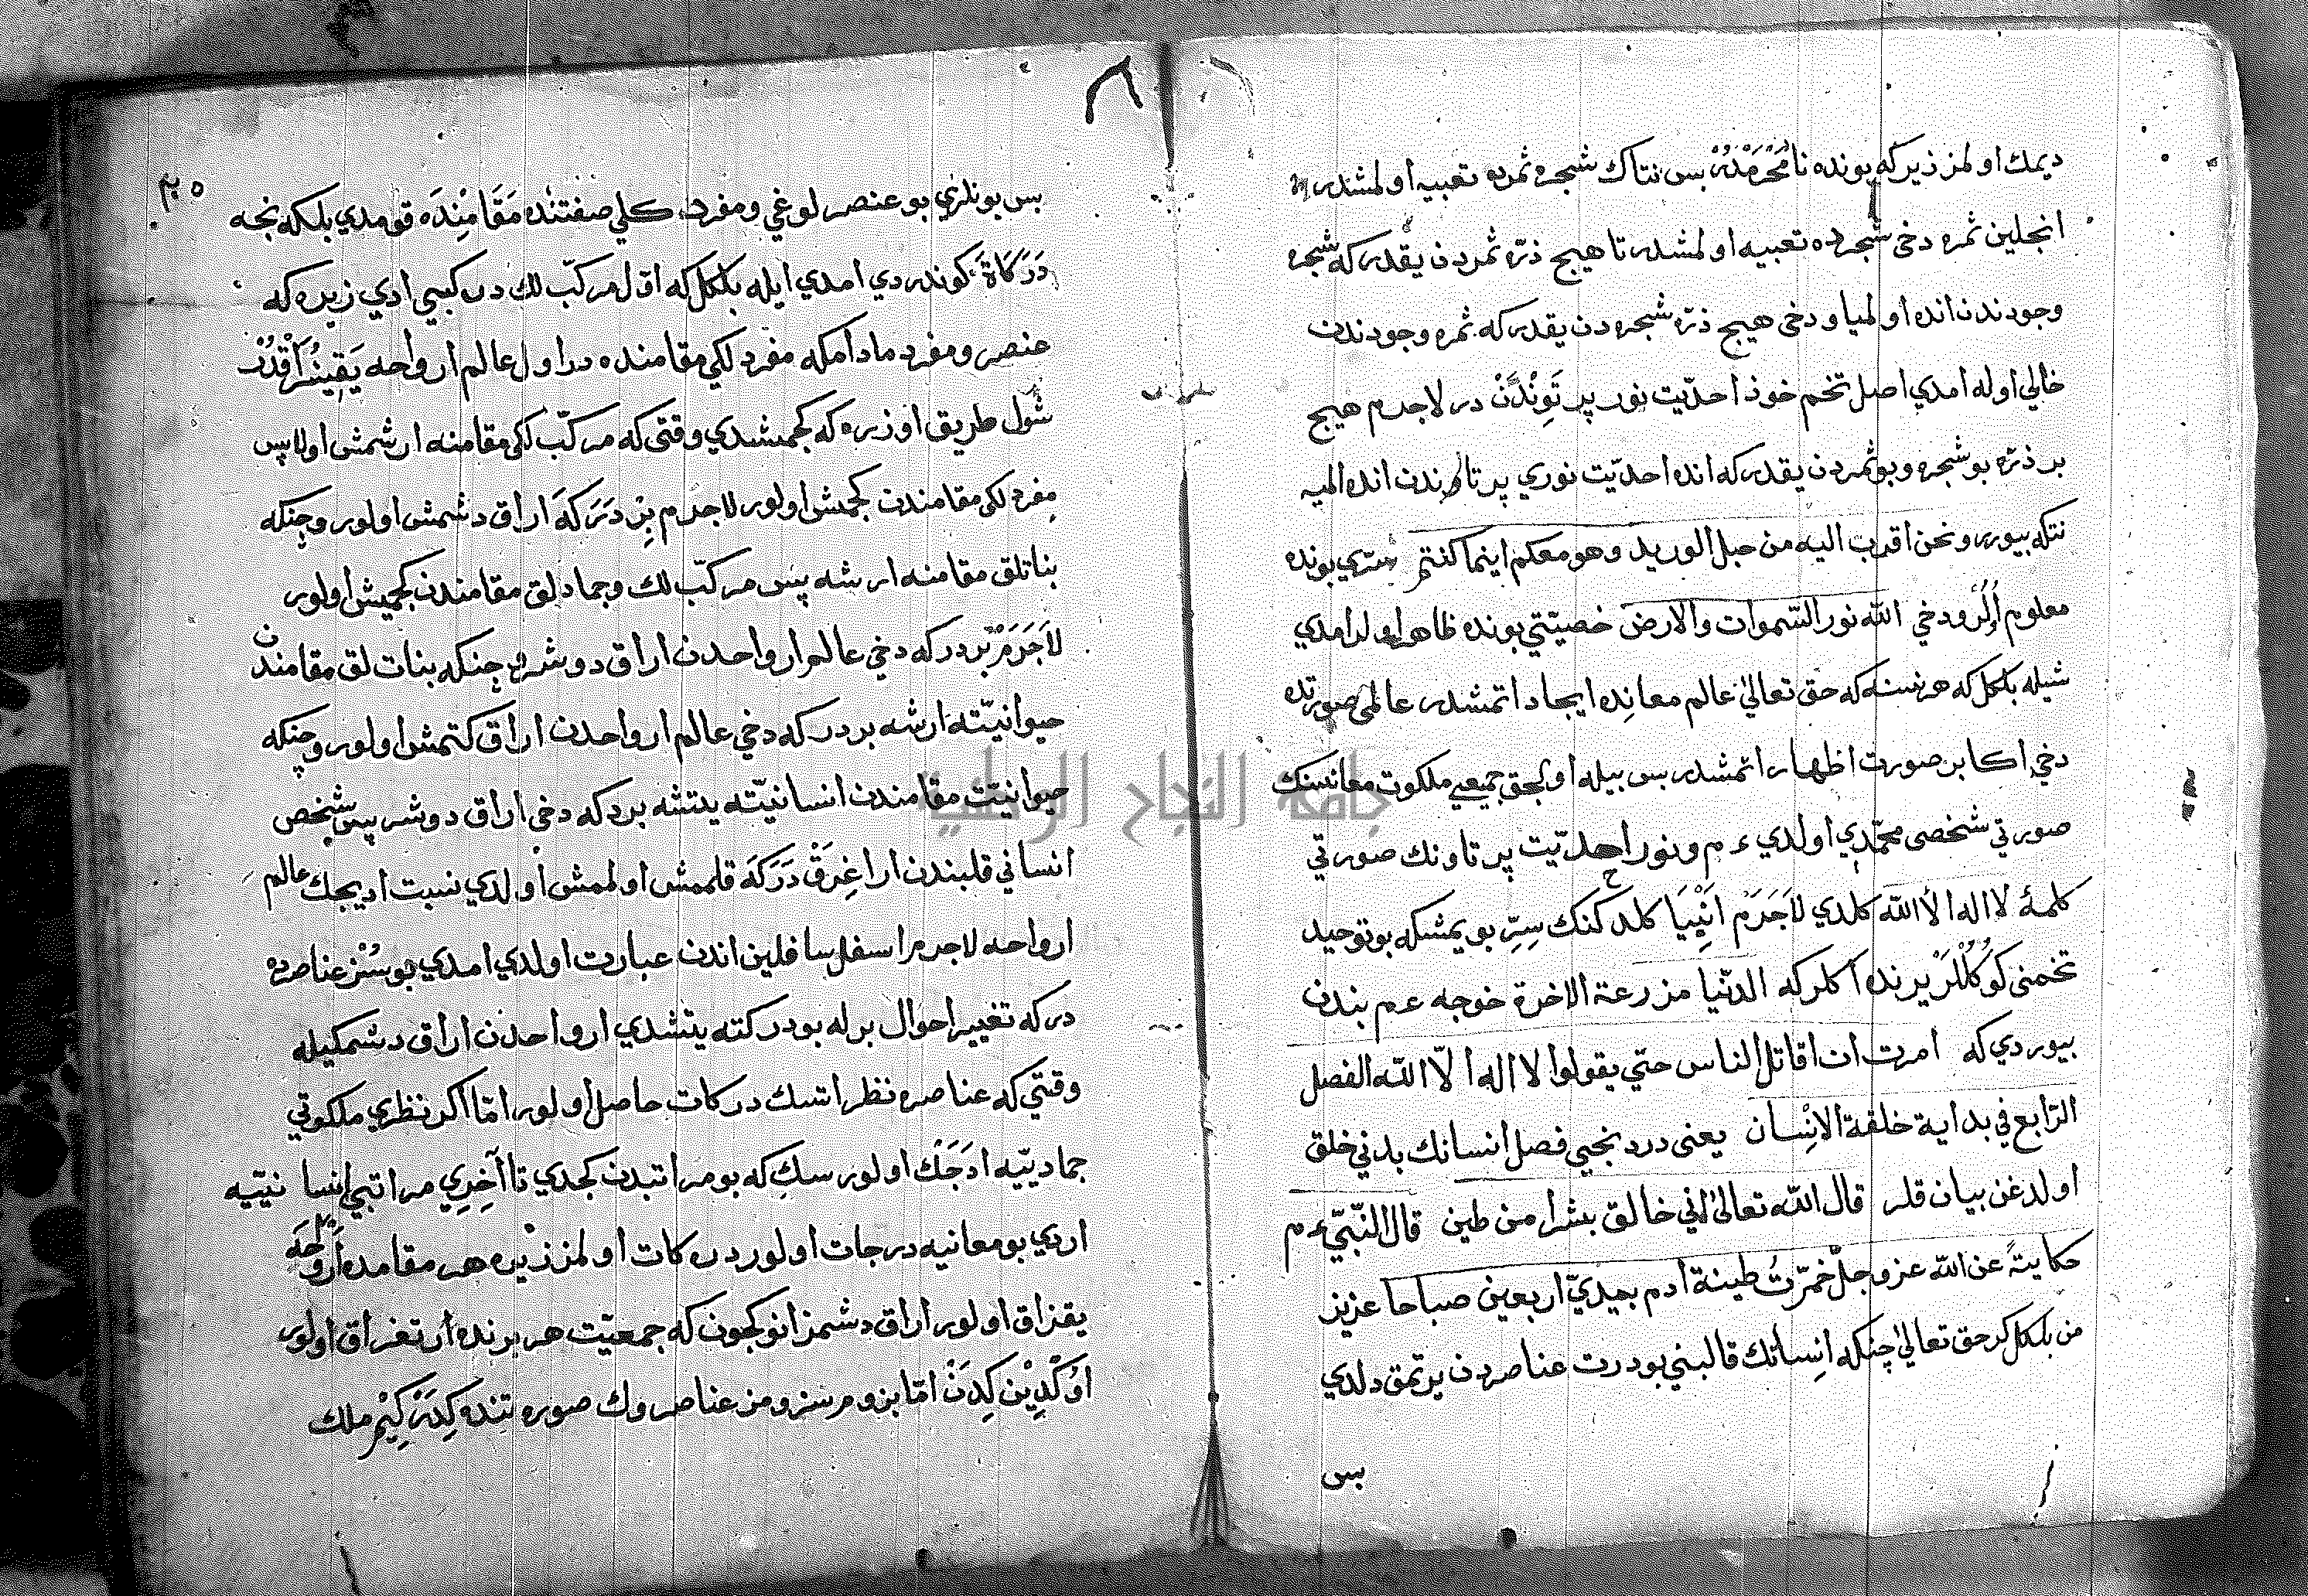 ديمك اولمز زيركه بونده نامحرمدر بس نتاك شجره ثمره تعبيه اولمشدر
انجلين ثمره دخى شجرده تعبيه اولمشدر تا هيچ ذرّه ثمردن يقدر كه شجره
وجودندن انده اولميا ودخى هيچ ذرّه شجره دن يقدر كه ثمره وجودندن
خالي اوله امدي اصل تخم خوذ احديّت نور پرتوندن در لاجرم هيچ
بر ذرّه بو شجره وبو ثمردن يقدر كه انده احديّت نوري پرتاوندن انده الميه
نتكه بيورر ونحن اقرب اليه من حبل الوريد وهو معكم اينما كنتم سرّي بونده
معلوم الر ودخي الله نور السّموات والارض خصيّتي بونده ظاهر اولر امدي
شيله بلكل كه هر نسنه كه حق تعالى عالم معانده ايجاد اتمشدر عالمى صورتده
دخي اكا بر صورت اظهار اتمشدر بس بيله اولجق جميعي ملكوت معانسنك
صورتي شخصى محمّدي اولدي ءم ونور احديّت پرتاونك صورتي
كلمۀ لا اله الا الله كلدي لاجرم انبيا كلدكنك سرّ بويمشكه بو توحيد
تخمنى كوكللر يرنده اكلر كه الدنيا مزرعة الاخرة خوجه عم بندن
بيوردي كه امرت ان اقاتل الناس حتي يقولوا لا اله الّا الله الفصل
الرّابع في بداية خلقة الانسان يعنى دردنجيي فصل انسانك بدني خلق
اولدغن بيان قلر قال الله تعالى اني خالق بشرا من طين قال النّبيّ ءم
حكايتهً عن الله عز وجلّ خمّرتُ طينة ادم بيديّ اربعين صباحا عزيز
من بلكل كر حق تعالى چنكه انسانك قالبني بو درت عناصردن يرتمق دلدي
بس
بس بونلري بو عنصرلوغي ومفرد كلي صفتنده مقامنده قومدي بلكه نجه
دركاة كوندردي امدي ايله بلكل كه اوّل مركّب لك دركبسي ادي زيره كه
عنصر ومفرد مادامكه مفردلكي مقامنده در اول عالم ارواحه يقينرقدر
شول طريق اوزره كه كجمشدي وقتى كه مركّب لكى مقامنه ارشمش اولا پس
مفردلكى مقامندن كجمش اولور لاجرم بر دركه اراق دشمش اولور وچنكه
بناتلق مقامنه ارشه پس مركّب لك وجمادلق مقامندن كجميش اولور
لاجرم بر دركه دخي عالم ارواحدن اراق دوشر و چنكه بنات لق مقامندن
حيوانيّته ارشه بر دركه دخي عالم ارواحدن اراق كتمش اولور وچنكه
حيوانيّت مقامندن انسانيّته يتشه بر دركه دخى اراق دوشر پس شخص
انساني قلبندن ارا غرق دركه قلممش اولممش اولدي نسبت اديجك عالم
ارواحه لاجرم اسفل سافلين اندن عبارت اولدي امدي بو سُنر عناصره
در كه تغيير احوال برله بو دركته يتشدي ارواحدن اراق دشمكيله
وقتي كه عناصره نظر اتسك دركات حاصل اولور امّا اكر نظري ملكوتي
جماديّيه ادجك اولورسك كه بو مراتبدن كجدي تا آخري مراتبي انسانيّيه
اردي بو معانيه درجات اولور دركات اولمز زيره هر مقامده ارواحه
يقنراق اولور اراق دشمز انوكجون كه جمعيّت هر برنده ارتغراق اولور
اوّكدين كدن امّا بز ومرسز ومن عناصروك صوره تنده كدركيم ملك